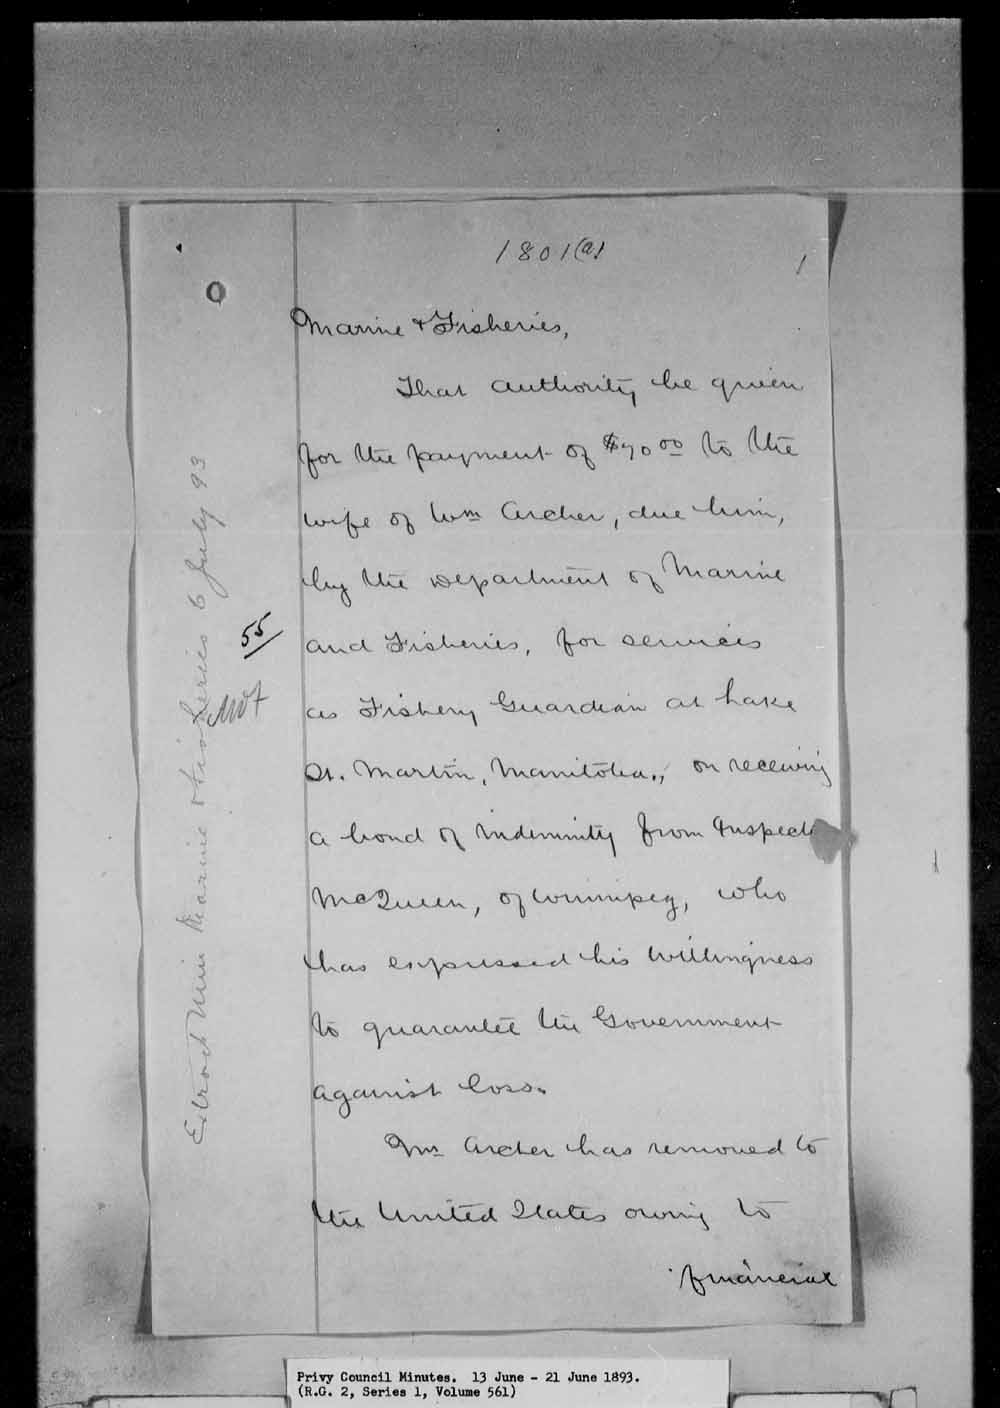 1801(a)
1
Marine & Fisheries,
That authority be given
for the payment of $70.00 to the
wife of Wm Archer, due him,
by the Department of Marine
and Fisheries, for services
as Fishery Guardian at Lake
St. Martin, Manitoba, on receiving
a bond of indemnity from Inspector
McQueen, of Winnipeg, who
has expressed his willingness
to guarantee the Government
against loss.
Mr. Archer has removed to
the United States owing to
financial
Extract Min Marine & Fisheries 6 July 93
55
Privy Council Minutes. 13 June - 21 June 1893.
(R.G. 2, Series 1, Volume 561)